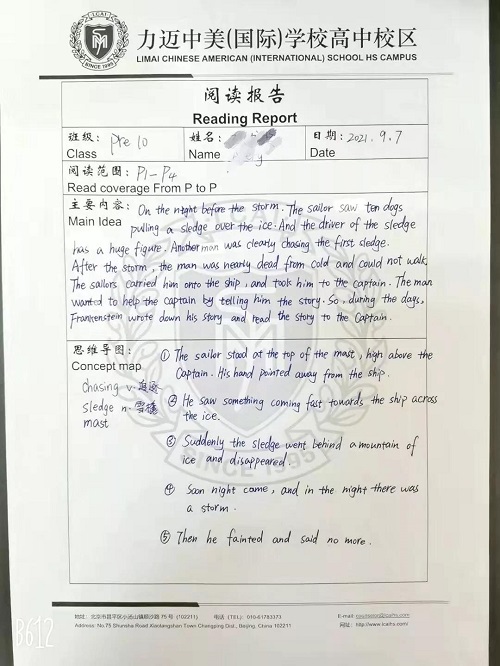 力迈中美(国际)学校高中校区
LIMAI CHINESE AMERICAN (INTERNATIONAL) SCHOOL HS CAMPUS
阅读报告
Reading Report
班级: Pre 10 姓名: 日期: 2021.9.7
Class Name Date
阅读范围: P1-P4
Read coverage From P to P
主要内容: On the night before the storm. The sailor saw ten dogs
Main Idea pulling a sledge over the ice. And the driver of the sledge
has a huge figure. Another man was clearly chasing the first sledge.
After the storm, the man was nearly dead from cold and could not walk.
The sailors carried him onto the ship, and took him to the captain. The man
wanted to help the Captain by telling him the story. So, during the days,
Frankenstein wrote down his story and read the story to the Captain.
思维导图:
Concept map
chasing v. 追逐
sledge n. 雪橇
mast
① The sailor stood at the top of the mast, high above the
Captain. His hand pointed away from the ship.
② He saw something coming fast towards the ship across
the ice.
③ Suddenly the sledge went behind a mountain of
ice and disappeared.
④ Soon night came, and in the night there was
a storm.
⑤ Then he fainted and said no more.
地址: 北京市昌平区小汤山镇顺沙路75号 (102211) 电话 (TEL) 010-61783373
Address: No.75 Shunsha Road,Xiaotangshan Town Changping Dist., Beijing, China 102211
网址: http://www.lcaihs.com/
B612
SINCE 1995